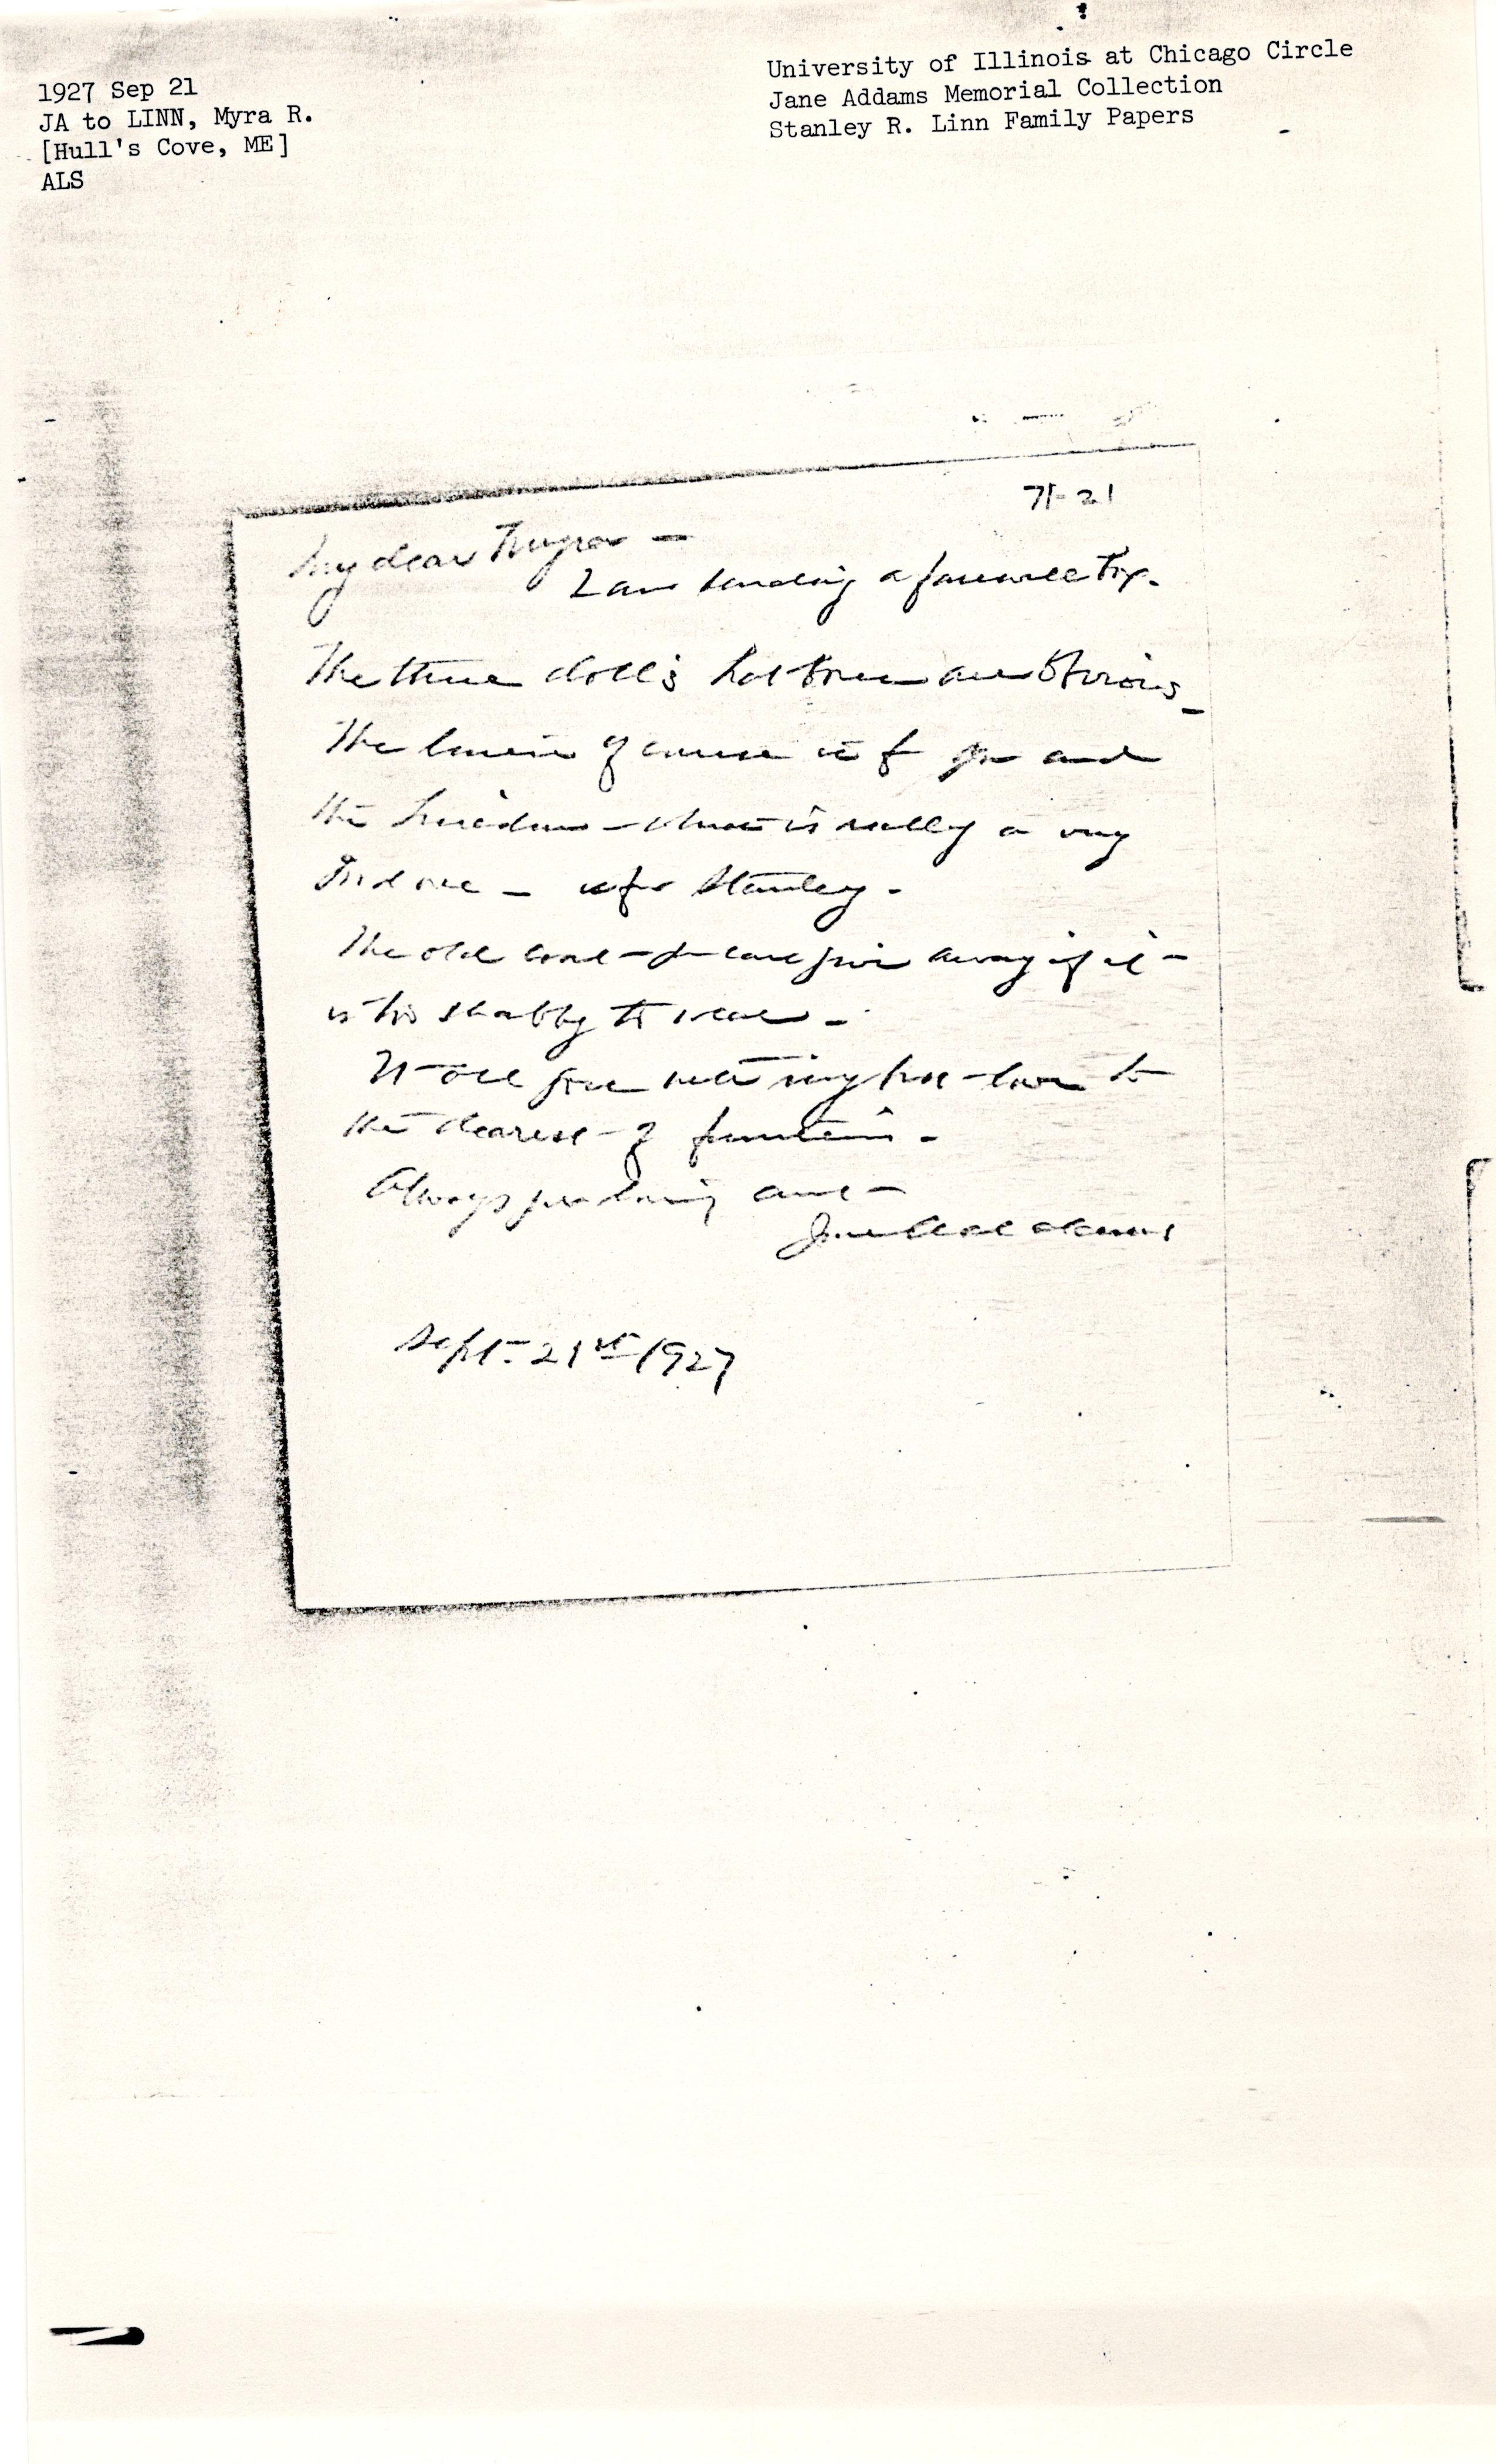 1927 Sep 21
JA to LINN, Myra R.
[Hull's Cove, ME]
ALS
University of Illinois at Chicago Circle
Jane Addams Memorial Collection
Stanley R. Linn Family Papers
71-21
My dear Myra —
I am sending a farewell box.
The three doll's hat boxes are obvious —
The linen of course is for you and
the — that is really a very
good one — is for Stanley.
The old coat you can give away if it
is too shabby to wear —
It all goes with my best love to
the dearest of families.
Always your loving aunt —
Jane Addams
Sept. 21st 1927